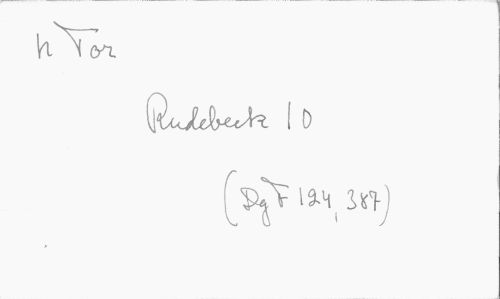 h Tor
Rudebeck 10
(DgF 124, 387)